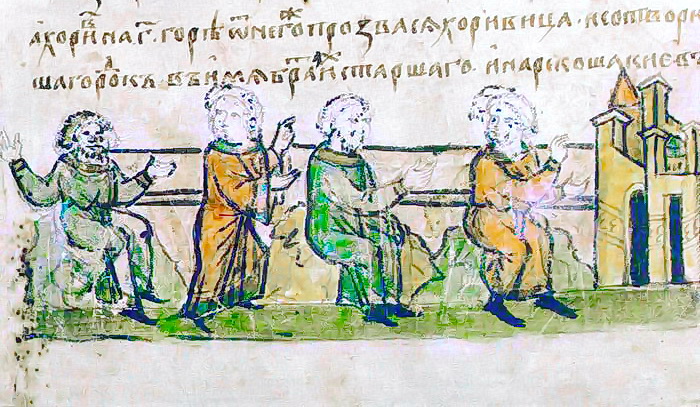 а хориⷡ на г҃. горѣ ѿ негоⷤ прозвасѧ хоривица · и сотвори
ша гороⷣкъ · въ имѧ браⷮ иⷯ старшаго · и нарекоша киевъ